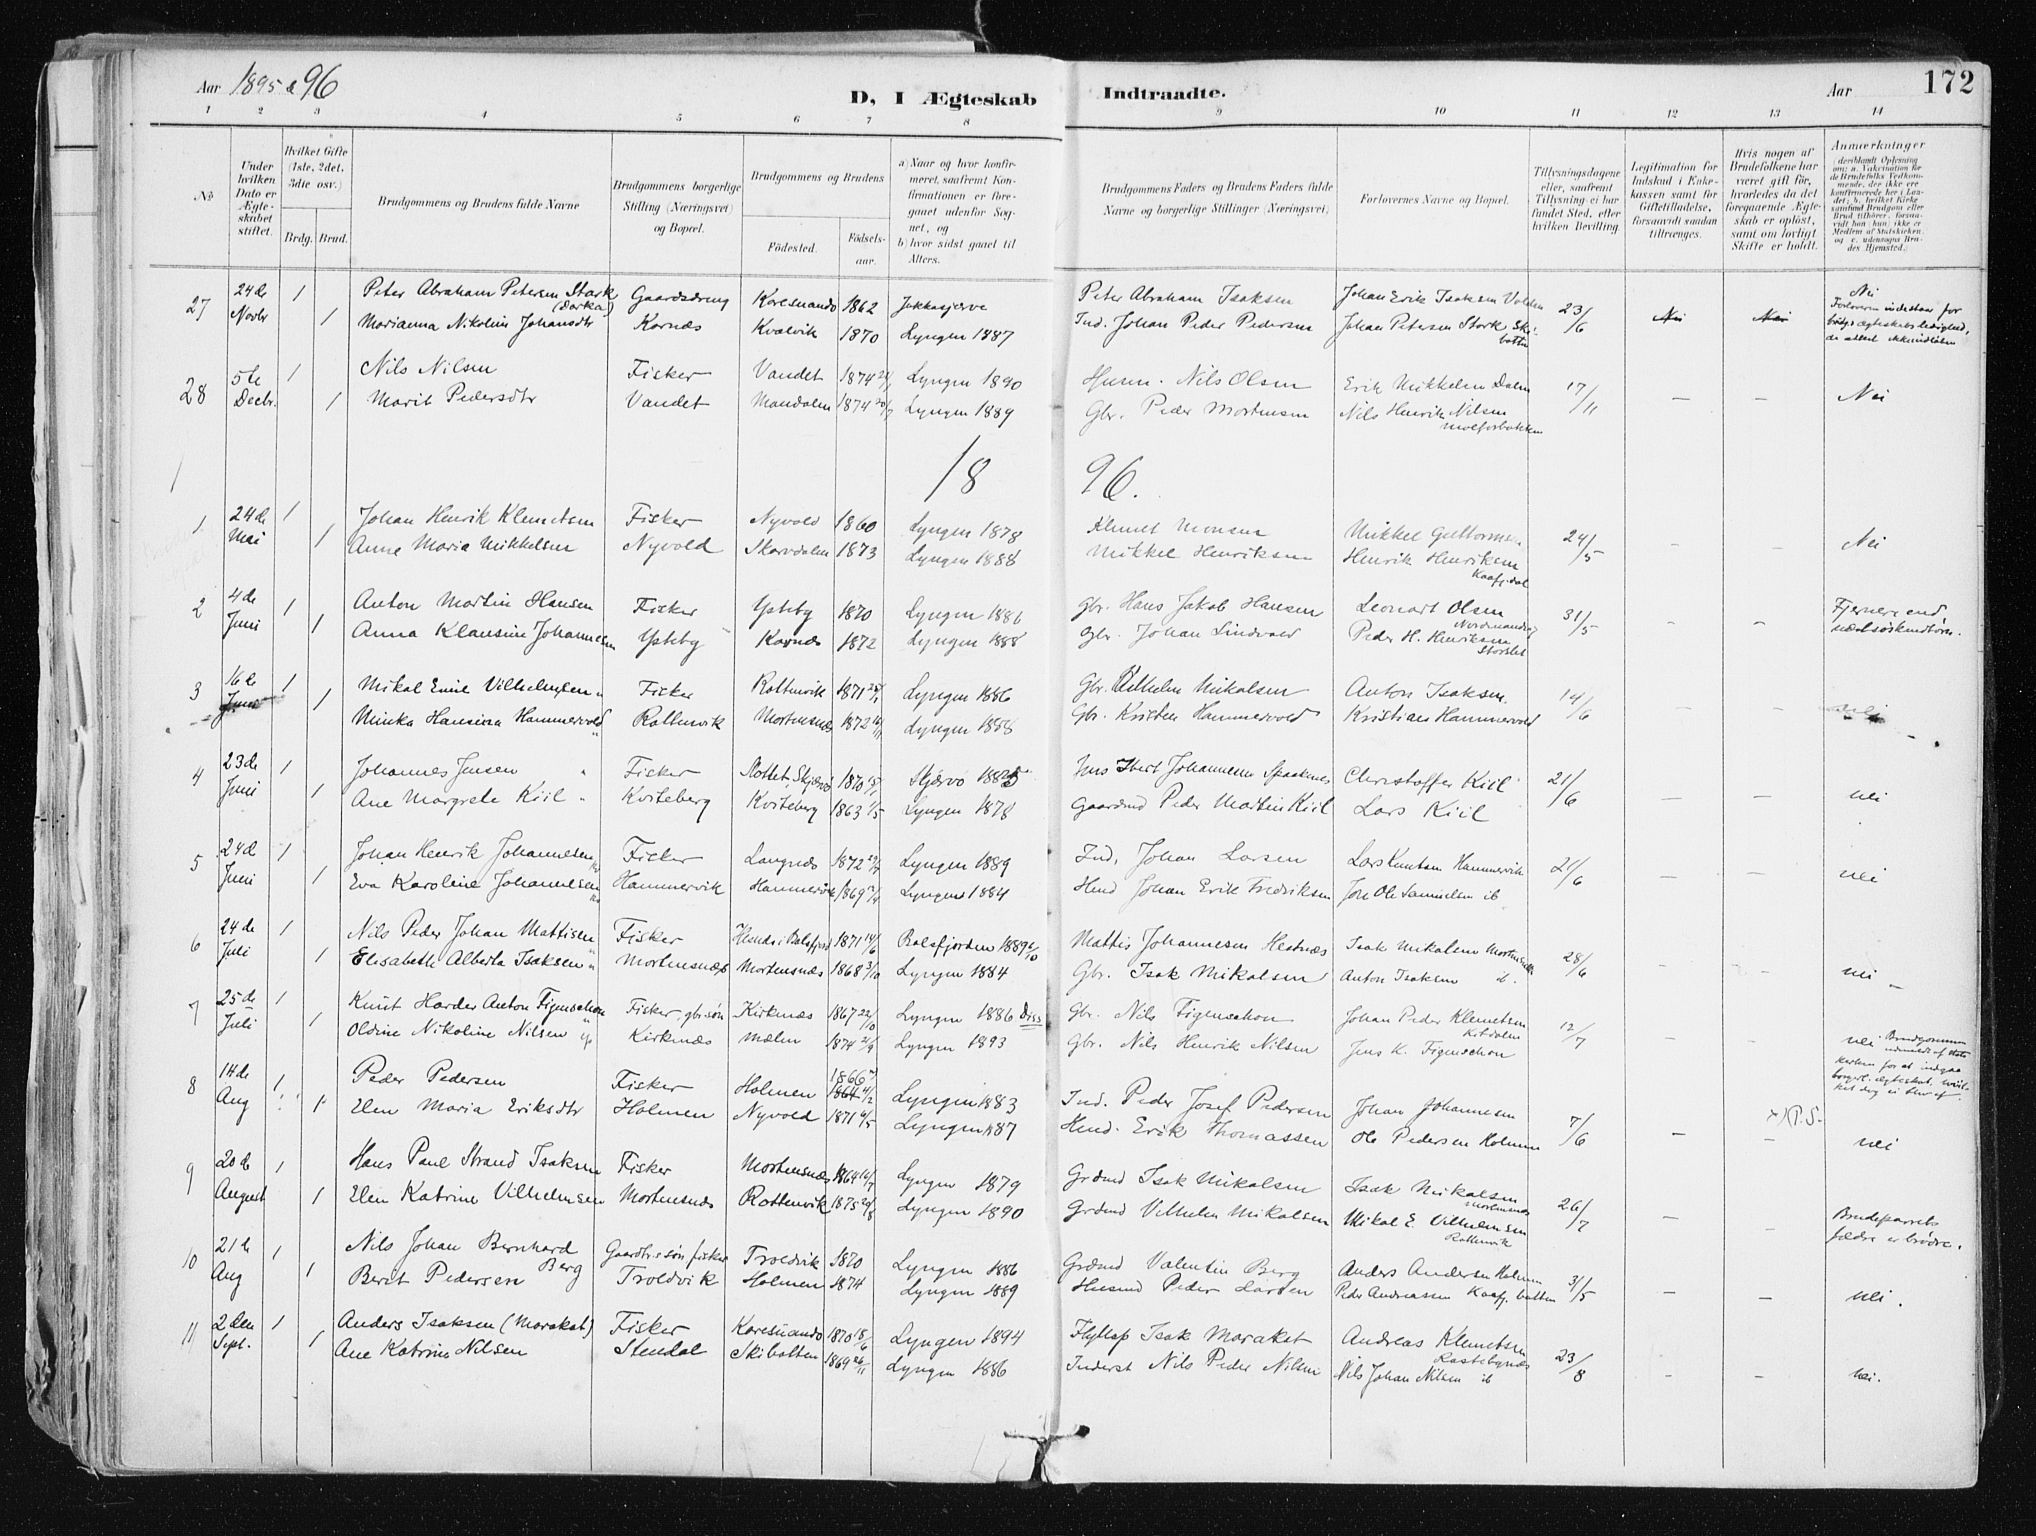 Aar 1895 & 96
D, I Ægteskab Indtraadte.
Aar
172
1 2 3 4 5 6 7 8 9 10 11 12 13 14
No
Under hvilken Dato er Ægteskabet stiftet.
Hvilket Gifte (1ste, 2det, 3die osv.)
Brdg. Brud.
Brudgommens og Brudens fulde Navne
Brudgommens borgerlige Stilling (Næringsvei) og Bopæl.
Brudgommens og Brudens
Fødested. Fødselsaar.
a) Naar og hvor konfirmeret, saafremt Konfirmationen er foregaaet udenfor Sognet, og
b) hvor sidst gaaet til Alters.
Brudgommens Faders og Brudens Faders fulde Navne og borgerlige Stillinger (Næringsvei)
Forlovernes Navne og Bopæl.
Tillysningsdagene eller, saafremt Tillysning ei har fundet Sted, efter hvilken Bevilling.
Legitimation for Indskud i Enkekassen samt for Giftetilladelse, forsaavidt saadan tiltrænges.
Hvis nogen af Brudefolkene har været gift før, hvorledes da det foregaaende Ægteskab er opløst, samt om lovligt Skifte er holdt.
Anmærkninger
27 24de Novbr 1 Peter Abraham Petersen Stork Gaardsdreng Karesuando 1862 Jukkasjervi Peter Abraham Isaksen Johan Erik Isaksen 23/6 Nei Nei Nei
1 Marianna Nikoline Johansdtr Kornæs Kvalvik 1870 Lyngen 1887 Ind. Johan Peder Pedersen Johan Petersen Stork
28 5te Decbr. 1 Nils Nilsen Fisker Vandet 1874 Lyngen 1890 Husm. Nils Olsen Erik Mikkelsen Dalen 17/11 — — Nei
1 Marit Pedersdtr Vandet Mandalen 1874 20/7 Lyngen 1889 Gbr. Peder Mortensen Nils Henrik Nilsen
18 96.
1 24de Mai 1 Johan Henrik Klemetsen Fisker Nyvold 1860 Lyngen 1878 Klemet Monsen Mikkel Guttormsen 24/5 — — Nei
1 Anne Maria Mikkelsen Nyvold Skardalen 1873 Lyngen 1888 Mikkel Henriksen Henrik Henriksen
Kaafj.dal
2 4de Juni 1 Anton Martin Hansen Fisker Ysteby 1870 Lyngen 1886 Gbr. Hans Jakob Hansen Leonart Olsen 31/5 — — Fjernere end
1 Anna Klausine Johannesen Ysteby Kornes 1872 Lyngen 1888 Gbr. Johan Lindvald Peder H. Henriksen næstsøskendebørn.
3 16de Juni 1 Mikal Emil Vilhelmsen Fisker Rottenvik 1871 Lyngen 1886 Gbr. Vilhelm Mikalsen Anton Isaksen 14/6 — —
1 Minka Hansina Hammervold Rottenvik Mortensnæs 1872 Lyngen 1888 Gbr. Kristen Hammervold Kristian Hammervold
4 23de Juni 1 Johannes Jensen Fisker Skjærvø 1870 Skjervø 1885 Jens Johannesen Spaaknes Christoffer Kiil 21/6 — — nei
1 Ane Margrete Kiil Kviteberg Kviteberg 1863 1/5 Lyngen 1878 Gaardmd Peder Martin Kiil Lars Kiil
5 24de Juni 1 Johan Henrik Johannesen Fisker Langnæs 1872 Lyngen 1889 Ind. Johan Larsen Lars Knutsen Hammervik 21/6 — — nei
1 Eva Karoline Johannesen Hammervik Hammervik 1869 Lyngen 1884 Husmd Johan Erik Fredriksen Jon Ole Samuelsen ib
6 24de Juli 1 Nils Peder Johan Mattisen Fisker Hesnæs i Balsfjord 1871 14/6 Balsfjorden 1889 Mattis Johannesen Hestnæs Isak Mikalsen 28/6 — — nei
1 Elisabeth Alberta Isaksen Mortensnæs Mortensnæs 1868 3/10 Lyngen 1884 Gbr. Isak Mikalsen Anton Isaksen ib.
7 25de Juli 1 Knut Harder Anton Figenschou Fisker, gbr.søn Kirknæs 1867 22/10 Lyngen 1886 Diss Gbr. Nils Figenschou Johan Peder Klemetsen
Kitdalen 12/7 — — nei - Brudgommen udmeldt af stats kirken for at indgaa borgerl. ægteskab,
1 Oldine Nikoline Nilsen Kirknæs Mælen 1874 21/9 Lyngen 1893 Gbr. Nils Henrik Nilsen Jens K. Figenschou
8 14de Aug 1 Peder Pedersen Fisker Holmen 1866 Lyngen 1883 Ind. Peder Josef Pedersen Johan Johannesen 7/6 — — x) P.S. nei
1 Elen Maria Eriksdtr Holmen Nyvold 1871 Lyngen 1887 Husd. Erik Thomassen Ole Pedersen Holmen
9 20de August 1 Hans Paul Strand Isaksen Fisker Mortensnæs 1864 Lyngen 1879 Grdmd Isak Mikalsen Isak Mikalsen
Mortensnæs 26/7 — — Brudeparrets
1 Elen Katrine Vilhelmsen Mortensnæs Rottenvik 1875 Lyngen 1890 Grdmd Vilhelm Mikalsen Mikal E. Vilhelmsen
Rottenvik fædre er brødre.
10 21de Aug 1 Nils Johan Bernhard Berg Gaardbr.søn fisker Troldvik 1870 Lyngen 1886 Grdmd Valentin Berg Anders Andersen Holmen 31/5 — — nei.
1 Berit Pedersen Troldvik Holmen 1874 Lyngen 1889 Husmd Peder Larsen Peder Andreassen Kaafj.botten
11 2den Sept. 1 Anders Isaksen (Marakat) Fisker Karesuando 1870 18/6 Lyngen 1894 Flytlap Isak Marakat Andreas Klemetsen
Rastebynæs 23/8 — — nei.
1 Ane Katrine Nilsen Stendal Skibotten 1869 26/11 Lyngen 1886 Inderst Nils Peder Nilsen Nils Johan Nilsen ib